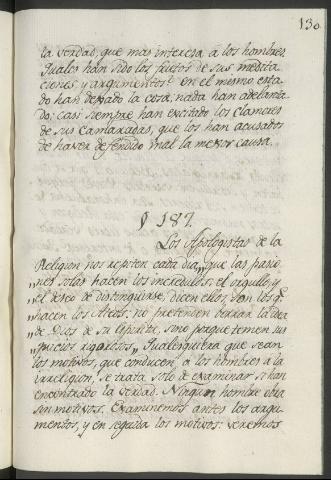 130
la verdad, que mas interesa a los hombres.
Quales han sido los frutos de sus medita
ciones y argumentos? En el mismo esta
do han dejado la cosa; nada han adelanta
do; casi siempre han excitado los clamores
de sus Camaradas, que los han acusados
de haver defendido mal la mejor causa.
§ 187.
Los Apologistas de la
Religion nos repiten cada dia, „que las pasio„
„nes solas hacen los incredulos: el orgullo, y
„el deseo de distinguirse, dicen ellos, son los q.e
„hacen los Atheos: no pretenden borrar la idea
„de Dios de su Espiritu, sino porque temen sus
„juicios rigidos„ Qualesquiera que sean
los motivos, que conducen a los hombres a la
irreligion, se trata solo de examinar si han
encontrado la verdad. Ningun hombre obra
sin motivos. Examinemos antes los argu
mentos, y en seguida los motivos: veremos